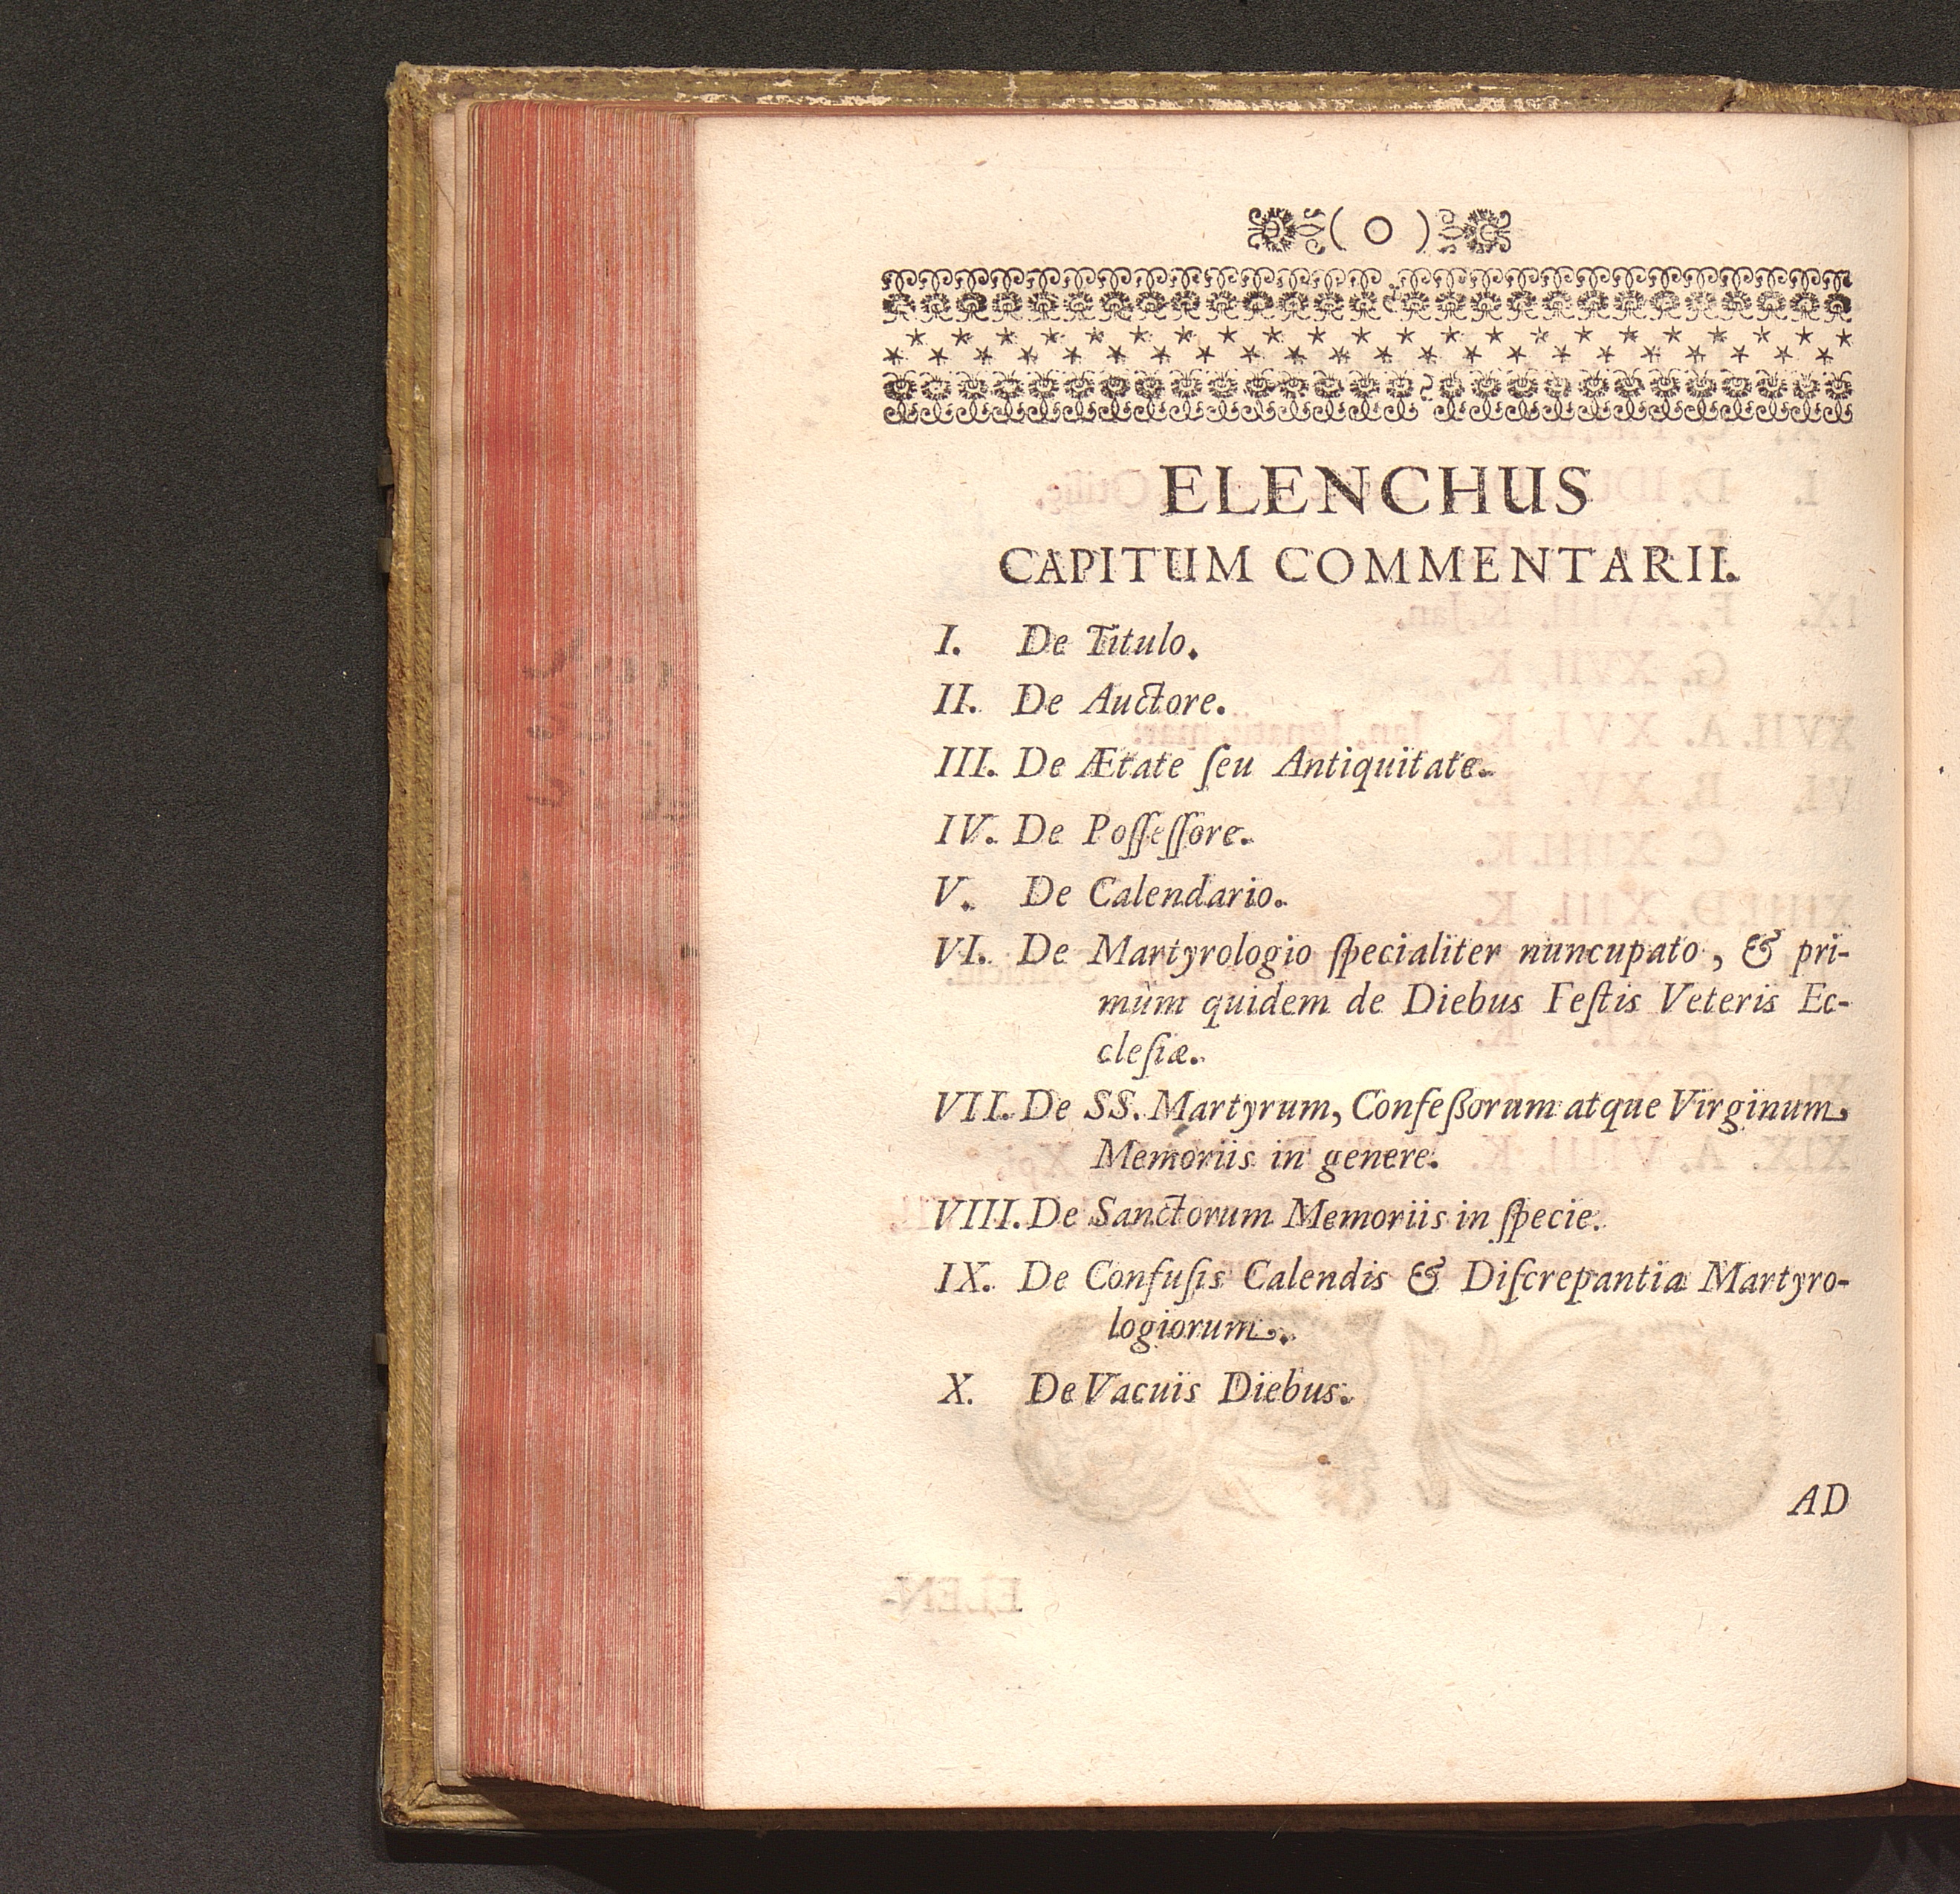 ( O )
ELENCHUS
CAPITUM COMMENTARII.
I. De Titulo.
II. De Auctore.
III. De Ætate ſeu Antiquitate.
IV. De Poſſeſſore.
V. De Calendario.
VI. De Martyrologio ſpecialiter nuncupato, & pri-
mùm quidem de Diebus Feſtis Veteris Ec-
cleſiæ.
VII. De SS. Martyrum, Confeßorum atque Virginum
Memoriis in genere.
VIII. De Sanctorum Memoriis in ſpecie.
IX. De Confuſis Calendis & Diſcrepantia Martyro-
logiorum.
X. De Vacuis Diebus.
AD